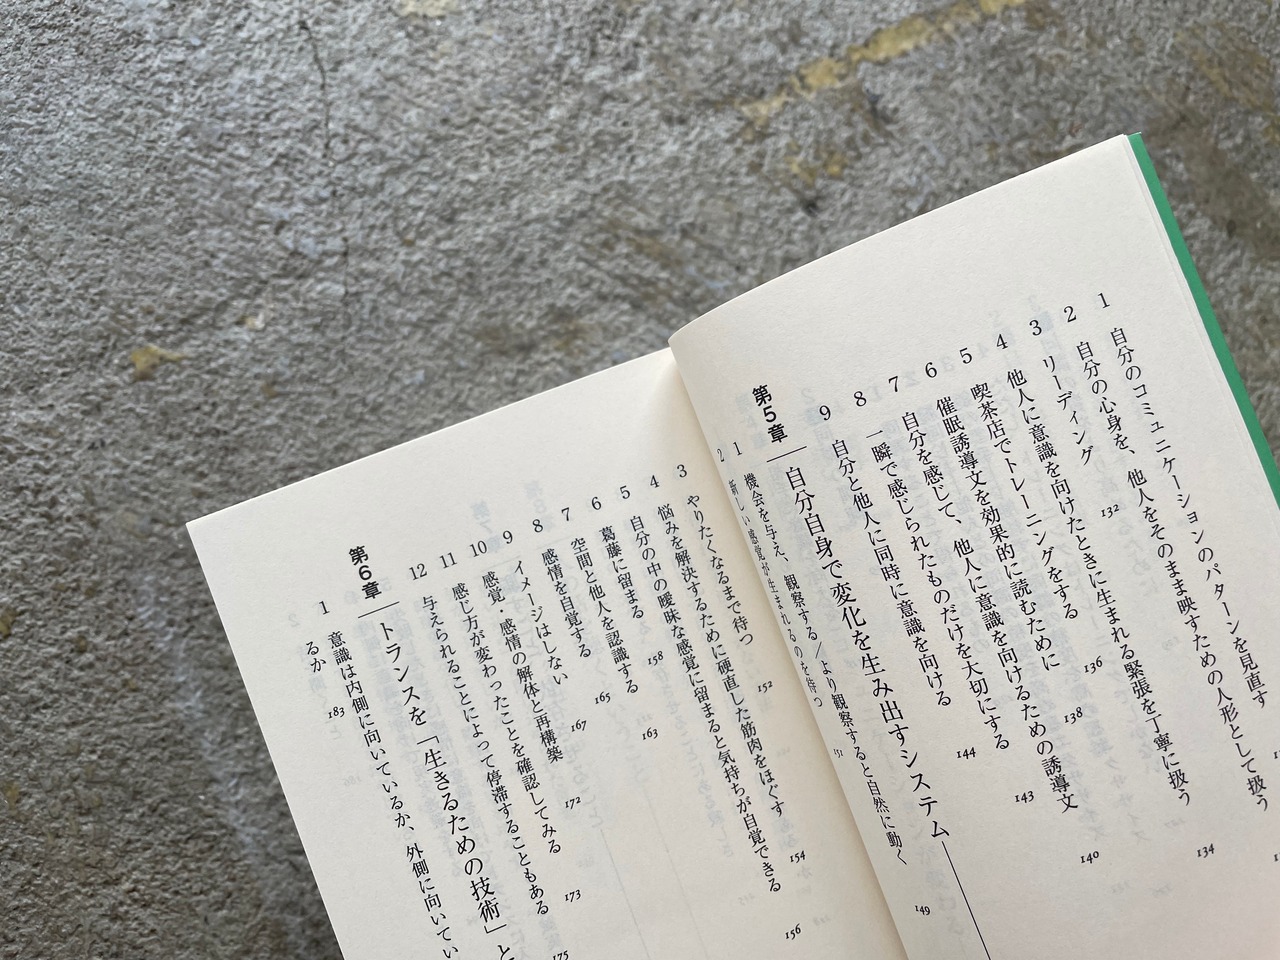 1 自分のコミュニケーションのパターンを見直す
2 自分の心身を、他人をそのまま映すための人形として扱う
リーディング 132
3 他人に意識を向けたときに生まれる緊張を丁寧に扱う 134
4 喫茶店でトレーニングをする 136
5 催眠誘導文を効果的に読むために 138
6 自分を感じて、他人に意識を向けるための誘導文 140
7 一瞬で感じられたものだけを大切にする 143
8 自分と他人に同時に意識を向ける 144
9
第5章 自分自身で変化を生み出すシステム 149
1 機会を与え、観察する／より観察すると自然に動く
2 新しい感覚が生まれるのを待つ 151
3 やりたくなるまで待つ 152
4 悩みを解決するために硬直した筋肉をほぐす 154
5 自分の中の曖昧な感覚に留まると気持ちが自覚できる 156
6 葛藤に留まる 158
7 空間と他人を認識する 163
8 感情を自覚する 165
9 イメージはしない 167
10 感覚・感情の解体と再構築
11 感じ方が変わったことを確認してみる 172
12 与えられることによって停滞することもある 173
第6章 トランスを「生きるための技術」と 175
1 意識は内側に向いているか、外側に向いてい
るか 183